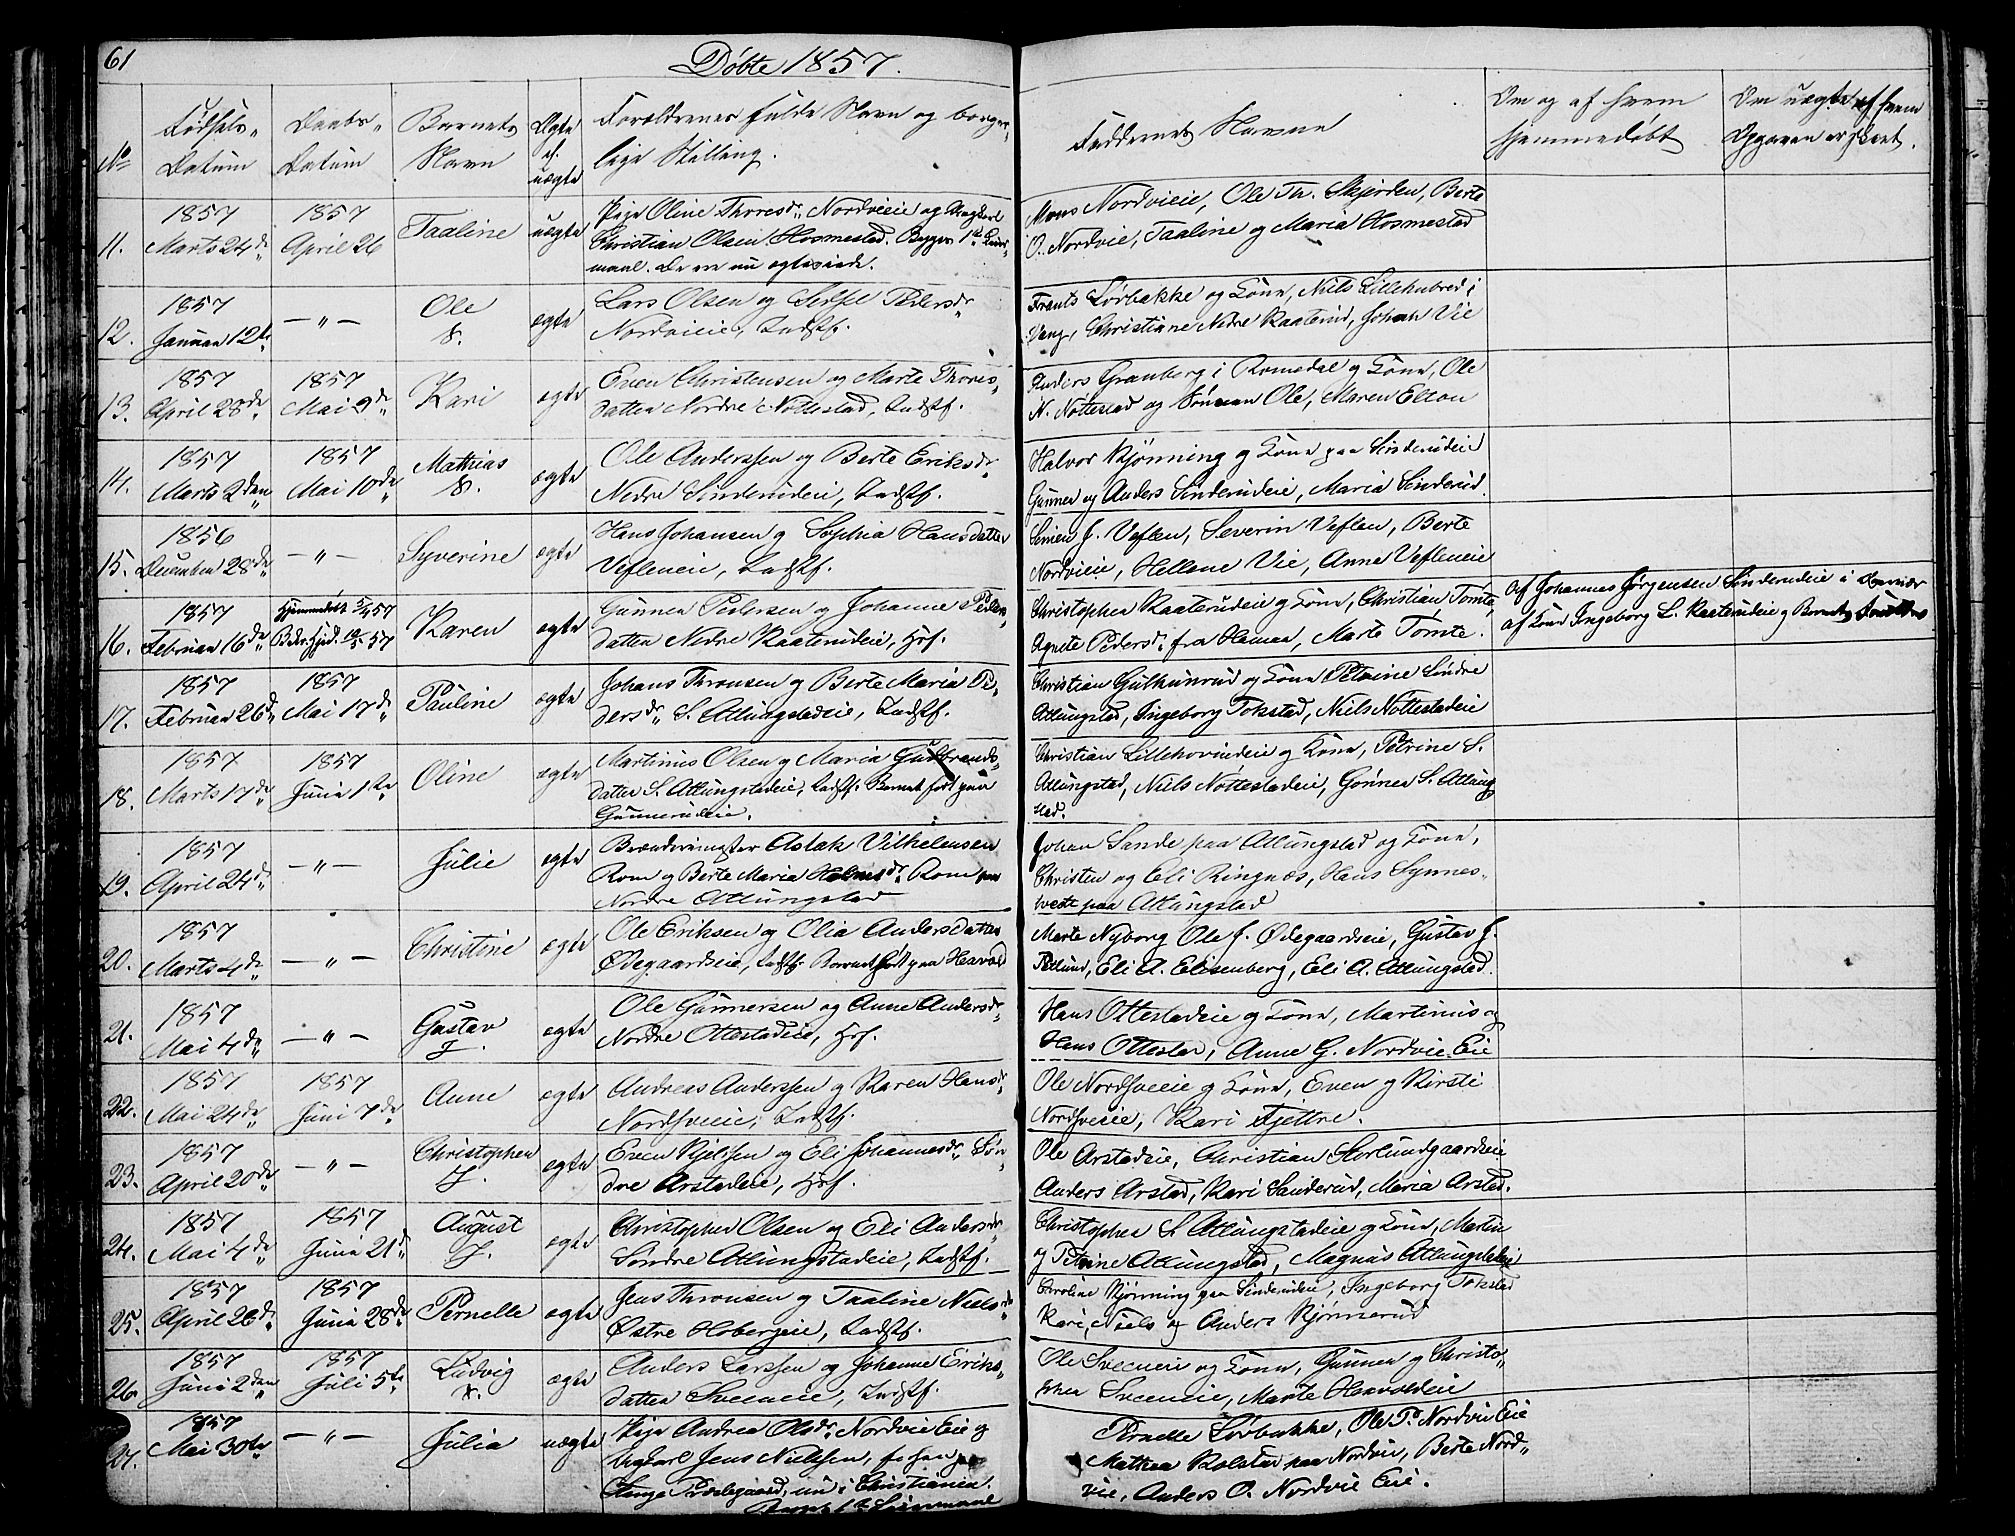 61
Døbte 1857.
No
Fødsels-
Datum
Daabs-
Datum
Barnets
Navn
Ægte
el.
uægte
Forældrenes fulde Navn og borger-
lige Stilling.
Faddernes Navne
Om og af hvem
hjemmedøbt
Om uægte af hvem
Opgaven er skeet.
11.
1857
Marts 24de
1857
April 26
Taaline
uægte
Pige Oline Thoresdr. Nordvieie og Ungkarl
Christian Olsen Hosmestad. Begges 1ste Leier-
maal. De ere nu ægteviede.
Mons Nordvieie, Ole Th. Skjerden, Berte
O. Nordvie, Taaline og Maria Hosmestad
12.
1857
Januar 12te
— " —
Ole
ægte
Lars Olsen og Sidsel Pedersdr.
Nordvieie, Indstf.
Frants Lørbakke og Kone, Niels Lillehubred i
Vang, Christiane Nedre Kaaterud, Johan Vie
13.
1857
April 28de
1857
Mai 9de
Kari
ægte
Even Christensen og Marte Thores-
datter Nordre Nøttestad, Indstf.
Anders Granberg i Romedal og Kone, Ole
N. Nøttestad og Sønnen Ole, Maren Elton
14.
1857
Marts 2den
1857
Mai 10de
Mathias
ægte
Ole Anderssen og Berte Eriksdr.
Nedre Sinderudeie, Indstf.
Halvor Kjønning og Kone paa Sinderudeie
Gunner og Anders Sinderudeie, Maria Sinderud.
15.
1856
December 28de
— " —
Syverine
ægte
Hans Johansen og Sophia Hansdatter
Vefleneie, Indstf.
Simen J. Veflen, Severin Veflen, Berte
Nordvieie, Hellene Vie, Anne Vefleneie
16.
1857
Februar 16de
Hjemmedøbt 5/4 57
Karen
ægte
Gunner Pedersen og Johanne Peders-
datter Nedre Kaaterudeie, Hf.
Christopher Kaaterudeie og Kone, Christian Tomte
Agnete Pedersdr. fra Hamar, Marte Tomte.
Af Johannes Jørgensen Sinderudeie i
af Kone Ingeborg L. Kaaterudeie og Barnets
17.
1857
Februar 26de
1857
Mai 17de
Pauline
ægte
Johans Thronsen og Berte Maria Pe-
dersdr. S. Atlungstadeie, Indstf.
Christian Gulkunrud og Kone Petrine Søndre
Atlungstad, Ingeborg Tokstad, Niels Nøttestadeie
18.
1857
Marts 17de
1857
Juni 1ste
Oline
ægte
Martinus Olsen og Maria Gulbrands-
datter S. Atlungstadeie, Indstf. Barnet født paa
Gunnerudeie.
Christian Lillehovindeie og Kone, Petrine S.
Atlungstad, Niels Nøttestadeie, Gønner S. Atlung
stad.
19.
1857
April 24de
— " —
Julie
ægte
Brænderimester Aslak Vilhelmsen
Rom og Berte Maria Holmsdr. Rom paa
Nordre Atlungstad
Johan Sande paa Atlungstad og Kone,
Christen og Eli Ringnæs, Hans Synnes-
tvedt paa Atlungstad
20.
1857
Marts 4de
— " —
Christine
ægte
Ole Eriksen og Olia Andersdatter
Ødegaardseie, Indstf. Barnet født paa Hexvold
Marte Nyborg Ole J. Ødegaardseie, Gustav J.
Petlund, Eli A. Elisenberg, Eli A. Atlungstad.
21.
1857
Mai 4de
— " —
Gustav
J.
ægte
Ole Gunnersen og Anne Andersdr.
Nordre Ottestadeie, Hf.
Hans Ottestadeie og Kone, Martinus og
Hans Ottestad, Anne G. Nordvie Eie
22.
1857
Mai 24de
1857
Juni 7de
Anne
ægte
Andreas Anderssen og Karen Hansdr.
Nordsveeie, Indstf.
Ole Nordsveeie og Kone, Even og Kirsti
Nordsveeie, Kari Fjettre.
23.
1857
April 20de
— " —
Christopher
J.
ægte
Even Kjelssen og Eli Johannesdr. Søn-
dre Arstadeie, Hf.
Ole Arstadeie, Christian Storlundgaardseie
Anders Arstad, Kari Sanderud, Maria Arstad.
24.
1857
Mai 4de
1857
Juni 21de
August
J.
ægte
Christopher Olsen og Eli Andersdr.
Søndre Atlungstadeie, Indstf.
Christopher S. Atlungstadeie og Kone, Martin
og Petrine Atlungstad, Magnus Atlungstadeie
25.
1857
April 26de
1857
Juni 28de
Pernelle
ægte
Jens Thronsen og Taaline Nielsdr.
Østre Hobergeie, Indstf.
Caroline Kjønning paa Sinderudeie, Ingeborg Tokstad
Kari, Niels og Anders Kjønnerud
26.
1857
Juni 2den
1857
Juli 5te
Ludvig
ægte
Anders Larssen og Johanne Eriks-
datter Sveeneie, Indstf.
Ole Sveeneie og Kone, Gunner og Christo-
pher Sveeneie, Marte Hexvoldeie
27.
1857
Mai 30te
— " —
Julia
uægte
Pige Andrea Olsdr. Nordvie Eie og
Ungkarl Jens Nielssen, før han paa
Stange Præstegaard, nu i Christiania.
Begges 1ste Leiermaal
Pernelle Lørbakke, Ole P. Nordvie Eie
Mathea Rolstad paa Nordvie, Berte Nord-
vie, Anders O. Nordvie Eie.